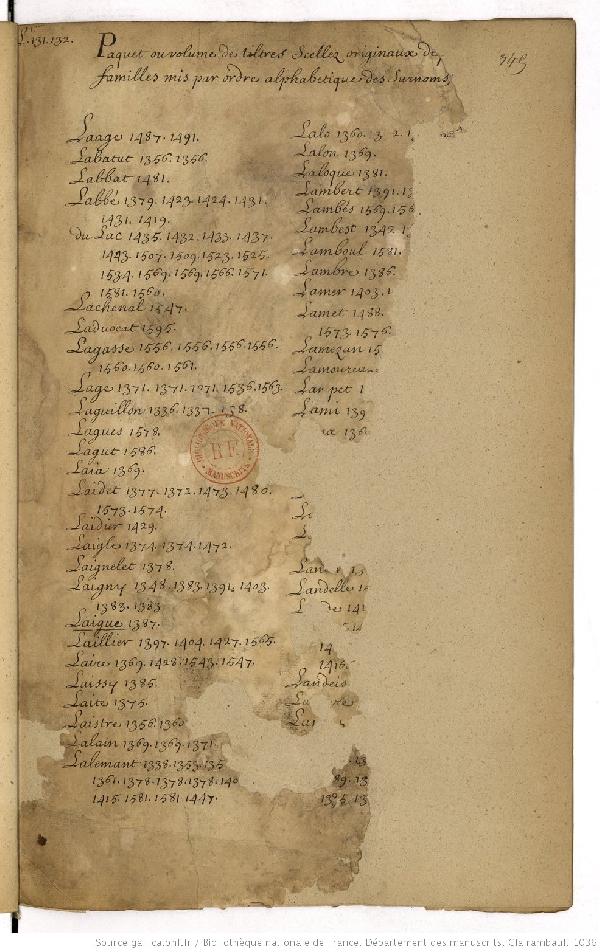 131.132.
Paquet ou volume de tiltres Scellez originaux de
familles mis par ordre alphabetique des Surnoms
345
Laage 1487. 1491.
Labatut 1356. 1356
Labbat 1481.
Labbé 1379. 1423. 1424. 1431.
1431. 1419.
du Lac 1435. 1432. 1433. 1437.
1443. 1507. 1509. 1523. 1525.
1534. 1569. 1569. 1566. 1571.
1581. 1560.
Lachenal 1547.
Laduocat 1595.
Lagasse 1556. 1556. 1556. 1556.
1560. 1560. 1561.
Lage 1371. 1371. 1371. 1536. 1563.
Laguillon 1336. 1337.
Lagues 1578.
Lagut 1586.
Laia 1369.
Laidet 1377. 1372. 1473. 1480.
1573. 1574.
Laidier 1429.
Laigle 1374. 1374. 1472.
Laignelet 1378.
Laigny 1348. 1383. 1391. 1403.
1383. 1383
Laigue 1387.
Laillier 1397. 1404. 1427. 1565.
Laire 1369. 1428. 1543. 1547.
Laissy 1385.
Laite 1375.
Laistre 1356. 1360
Lalain 1369. 1369. 1371.
Lalemant 1338. 1353. 135
1361. 1378. 1378. 1378. 140
1415. 1581. 1581. 1447.
Lalo 1360. 3 2. 1
Lalon 1369.
Laloque 1381.
Lambert 1391. 13
Lambés 1569. 156
Lambest 1342. 1
Lamboul 1581.
Lambre 1386.
Lamer 1403. 1
Lamet 1488.
1573. 1576.
Lamezan 15
Lamoureux
Lampet 1
Lami 139
136
Lan
Landelle 1
de 141
14
1416.
Landeis
La
La
13
89. 13
1395. 13
BIBLIOTHEQUE NATIONALE
RF
MANUSCRITS
Source gallica.bnf.fr / Bibliothèque nationale de France. Département des manuscrits. Clairambault. 1036